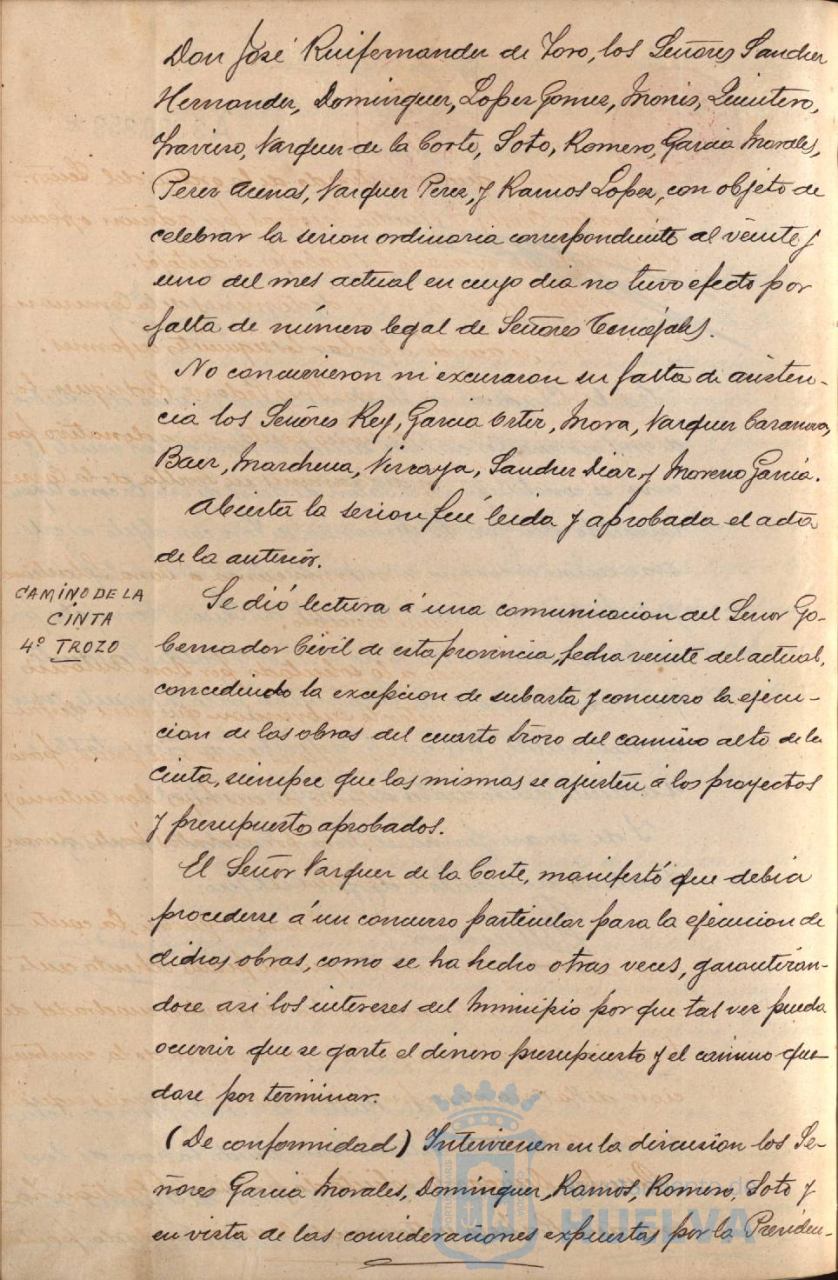 Don José Ruifernandez de Toro, los Señores Sanchez
Hernandez, Dominguez, Lopez Gomez, Monis, Quintero,
Travieso, Vazquez de la Corte, Soto, Romero, Garcia Morales,
Perez Arenas, Vazquez Perez, y Ramos Lopez, con objeto de
celebrar la sesion ordinaria correspondiente al veinte y
uno del mes actual en cuyo dia no tuvo efecto por
falta de número legal de Señores Concejales.
No concurrieron ni excusaron su falta de asisten-
cia los Señores Rey, Garcia Ortiz, Mora, Vazquez Casanova,
Baez, Marchena, Vizcaya, Sanchez Diaz, y Moreno Garcia.
Abierta la sesion fué leida y aprobada el acta
de la anterior.
CAMINO DE LA
CINTA
4º TROZO
Se dió lectura á una comunicacion del Señor Go-
bernador Civil de esta provincia, fecha veinte del actual,
concediendo la excepcion de subasta y concurso la ejecu-
cion de las obras del cuarto trozo del camino alto de la
Cinta, siempre que las mismas se ajusten á los proyectos
y presupuesto aprobados.
El Señor Vazquez de la Corte, manifestó que debia
procederse á un concurso particular para la ejecucion de
dichas obras, como se ha hecho otras veces, garantizan-
dose asi los intereses del Municipio por que tal vez pueda
ocurrir que se gaste el dinero presupuesto y el camino que-
dase por terminar.
(De conformidad) Intervienen en la discusion los Se-
ñores Garcia Morales, Dominguez, Ramos, Romero, Soto y
en vista de las consideraciones expuestas por la Presiden-
HUELVA